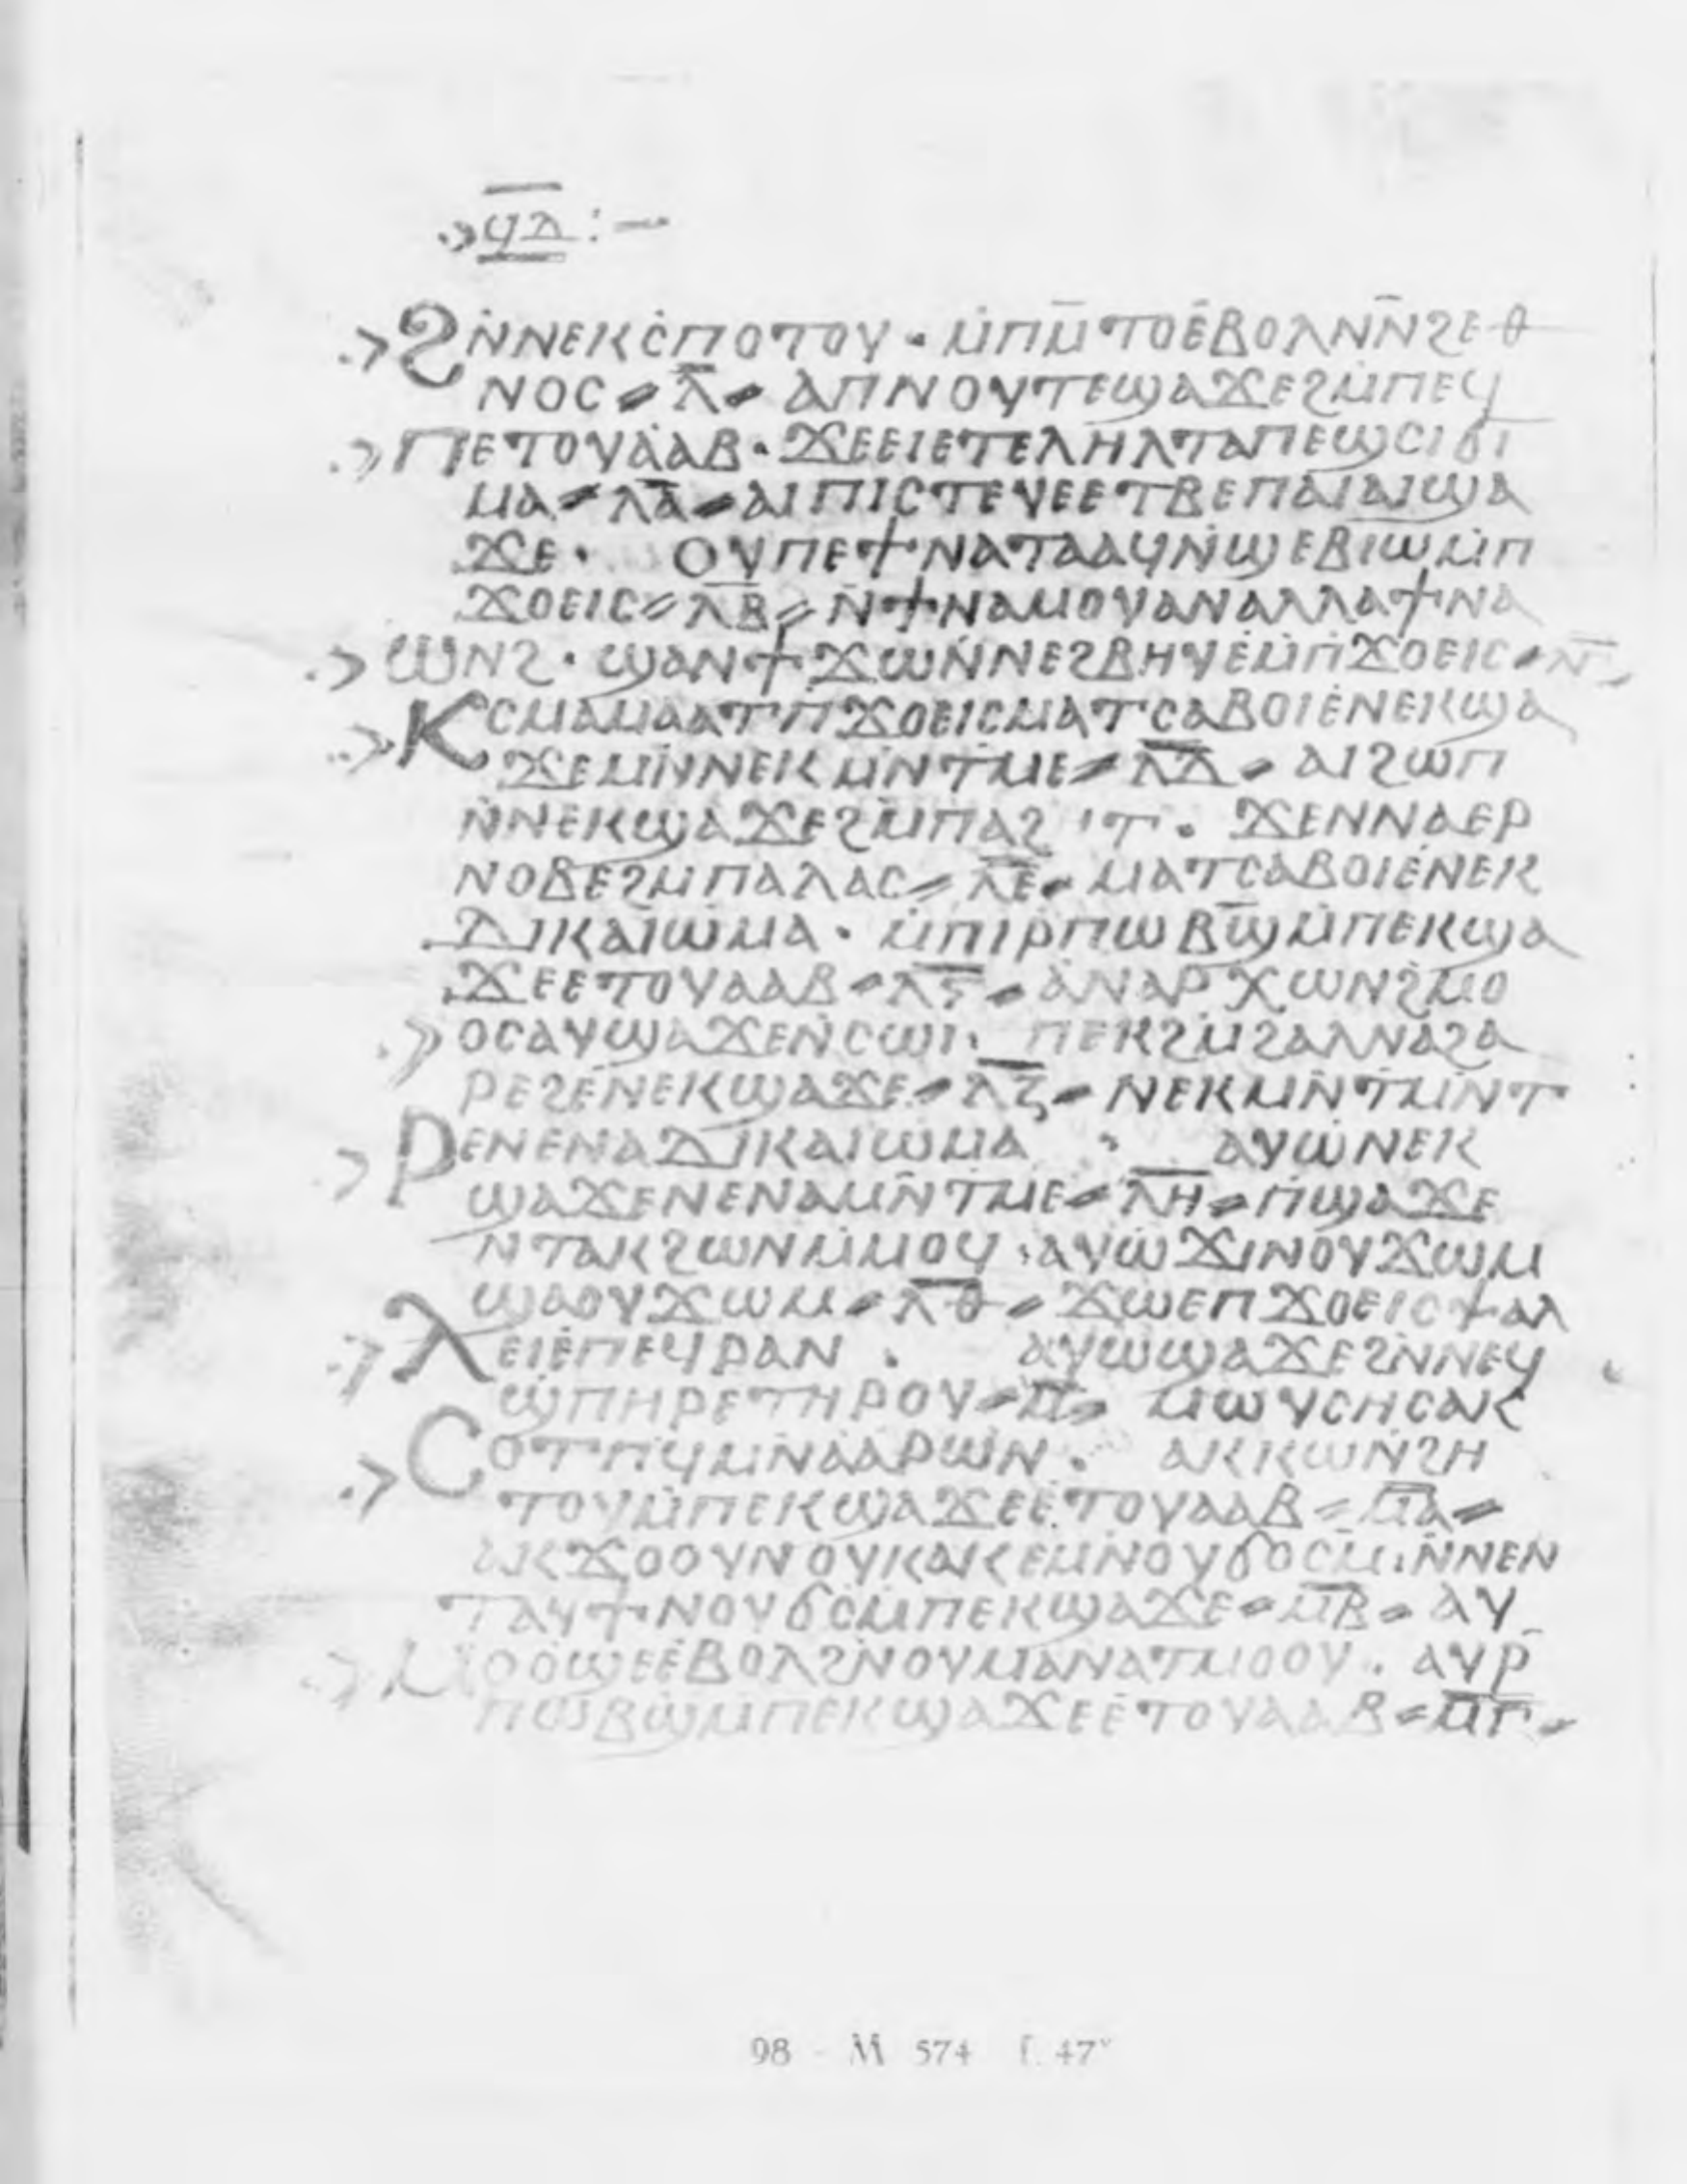 ϥⲇ :—
ϨⲚⲚⲈⲔⲤⲠⲞⲦⲞⲨ · ⲘⲠⲘ̄ⲦⲞⲈⲂⲞⲖⲚⲚ̄ϨⲈⲐ
ⲚⲞⲤ ⸗ Ⲗ̄ ⸗ ⲀⲠⲚⲞⲨⲦⲈϢⲀϪⲈϨⲘⲠⲈϤ
ⲠⲈⲦⲞⲨⲀⲀⲂ · ϪⲈⲈⲒⲈⲦⲈⲖⲎⲖⲦⲀⲠⲈϢⲤⲒϬⲒ
ⲘⲀ ⸗ Ⲗ̄Ⲁ̄ ⸗ ⲀⲒⲠⲒⲤⲦⲈⲨⲈⲈⲦⲂⲈⲠⲀⲒⲀⲒϢⲀ
ϪⲈ · ⲞⲨⲠⲈϮⲚⲀⲦⲀⲀϤⲚϢⲈⲂⲒⲰⲘⲠ
ϪⲞⲈⲒⲤ ⸗ Ⲗ̄Ⲃ̄ ⸗ ⲚϮⲚⲀⲘⲞⲨⲀⲚⲀⲖⲖⲀϮⲚⲀ
ⲰⲚϨ · ϢⲀⲚϮϪⲰⲚⲚⲈϨⲂⲎⲨⲈⲘⲠϪⲞⲈⲒⲤ ⸗
ⲔⲤⲘⲀⲘⲀⲀⲦⲠϪⲞⲈⲒⲤⲘⲀⲦⲤⲀⲂⲞⲒⲈⲚⲈⲔϢⲀ
ϪⲈⲘⲚⲚⲈⲔⲘⲚⲦⲘⲈ ⸗ Ⲗ̄Ⲇ̄ ⸗ ⲀⲒϨⲰⲠ
ⲚⲚⲈⲔϢⲀϪⲈϨⲘⲠⲀϨⲒⲦ · ϪⲈⲚⲚⲀⲈⲢ
ⲚⲞⲂⲈϨⲘⲠⲀⲖⲀⲤ ⸗ Ⲗ̄Ⲉ̄ ⸗ ⲘⲀⲦⲤⲀⲂⲞⲒⲈⲚⲈⲔ
ⲆⲒⲔⲀⲒⲰⲘⲀ · ⲘⲠⲒⲢⲠⲰⲂϢ̄ⲘⲠⲈⲔϢⲀ
ϪⲈⲈⲦⲞⲨⲀⲀⲂ ⸗ Ⲗ̄Ⲋ̄ ⸗ ⲀⲚⲀⲢⲬⲰⲚϨⲘⲞ
ⲞⲤⲀⲨϢⲀϪⲈⲚⲤⲰⲒ · ⲠⲈⲔϨⲘϨⲀⲖⲚⲀϨⲀ
ⲢⲈϨⲈⲚⲈⲔϢⲀϪⲈ ⸗ Ⲗ̄Ⲍ̄ ⸗ ⲚⲈⲔⲘⲚ̄ⲦⲘⲚⲦ
ⲢⲈⲚⲈⲚⲀⲆⲒⲔⲀⲒⲰⲘⲀ · ⲀⲨⲰⲚⲈⲔ
ϢⲀϪⲈⲚⲈⲚⲀⲘⲚ̄ⲦⲘⲈ ⸗ Ⲗ̄Ⲏ̄ ⸗ ⲠϢⲀϪⲈ
ⲚⲦⲀⲔϨⲰⲚⲘⲘⲞϤ · ⲀⲨⲰϪⲒⲚⲞⲨϪⲰⲘ
ϢⲀⲞⲨϪⲰⲘ ⸗ Ⲗ̄Ⲑ̄ ⸗ ϪⲰⲈⲠϪⲞⲈⲒⲤϮⲀⲖ
ⲖⲈⲒⲈⲠⲈϤⲢⲀⲚ · ⲀⲨⲰϢⲀϪⲈϨⲚⲚⲈϤ
ϢⲠⲎⲢⲈⲦⲎⲢⲞⲨ ⸗ Ⲙ̄ ⸗ ⲘⲰⲨⲤⲎⲤⲀⲔ
ⲤⲞⲦⲠϤⲘⲚⲀⲀⲢⲰⲚ · ⲀⲔⲔⲰⲚϨⲎ
ⲦⲞⲨⲘⲠⲈⲔϢⲀϪⲈⲈⲦⲞⲨⲀⲀⲂ ⸗ Ⲙ̄Ⲁ̄ ⸗
ⲀⲔϪⲞⲞⲨⲚⲞⲨⲔⲀⲔⲈⲘⲚⲞⲨϬⲞⲤⲘ · ⲚⲚⲈⲚ
ⲦⲀⲨϮⲚⲞⲨϬⲤⲘⲠⲈⲔϢⲀϪⲈ ⸗ Ⲙ̄Ⲃ̄ ⸗ ⲀⲨ
ⲘⲞⲞϢⲈⲈⲂⲞⲖϨⲚⲞⲨⲘⲀⲚⲀⲦⲘⲞⲞⲨ · ⲀⲨⲢ̄
ⲠⲰⲂϢⲘⲠⲈⲔϢⲀϪⲈⲈⲦⲞⲨⲀⲀⲂ ⸗ Ⲙ̄Ⲅ̄ ⸗
98 - M 574 f. 47ᵛ